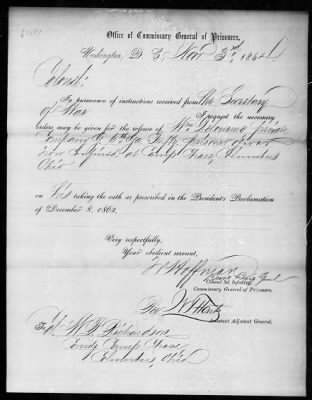 Office of Commissary General of Prisoners,
Washington, D. C., Nov 3rd, 1864
Colonel:
In pursuance of instructions received from The Secretary
of War I request the necessary
orders may be given for the release of Wm private
Company Ga prisoner of war
now confined at Camp Chase, Columbus
Ohio
on his taking the oath as prescribed in the President's Proclamation
of December 8, 1863.
Very respectfully,
Your obedient servant,
W Hoffman
Colonel 3d Infantry,
Commissary General of Prisoners.
Assistant Adjutant General.
To Col W. P. Richardson
Comdg Camp Chase,
Columbus, Ohio